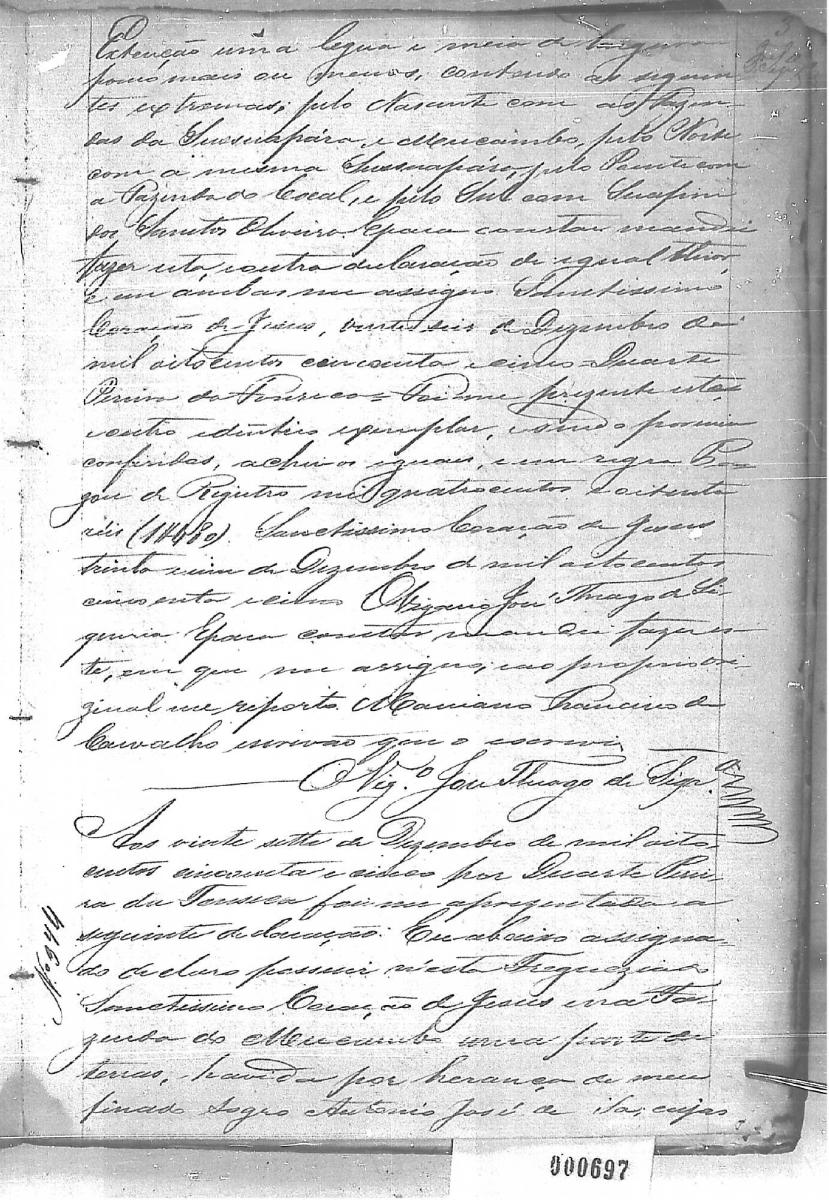 Extenção uma legua e meia de largura
pouco mais ou menos, contendo as seguin-
tes extremas; pelo Nascente com as Fazen-
das da Sussuapára, e Mucambo, pelo Norte
com a mesma Sussuapára, pelo Poente com
a Fazenda do Cocal, e pelo Sul com Serafim
dos Santos Oliveira. E para constar mandei
fazer esta, e outra declaração de igual theor,
e em ambas me assigno. Sanctissimo
Coração de Jesus, vinte seis de Dezembro de
mil oitocentos cincoenta e cinco = Duarte
Pereira da Fonseca = Foi me prezente esta,
e outro identico exemplar, e sendo por mim
conferidas, achei os iguaes, e em regra Pa-
gou de Registro mil quatrocentos e oitenta
réis (1$480). Sanctissimo Coração de Jesus
trinta e um de Dezembro de mil oitocentos
cincoenta e cinco O Vigario José Thiago de Si-
queira E para constar mandei fazer es-
te, em que me assigno, e ao proprio ori-
ginal me reporto. Marianno Francisco de
Carvalho escrivão que o escrevi
O Vig.º José Thiago de Siqr.ª
Aos vinte sette de Dezembro de mil oito
centos cincoenta e cinco por Duarte Perei-
ra da Fonseca foi me aprezentada a
seguinte declaração. Eu abaixo assigna-
do declaro possuir n'esta Freguezia do
Sanctissimo Coração de Jesus e na Fa-
zenda do Mucambo uma parte de
terras, havida por herança de meu
finado sogro Antonio José de Sa, cujas
N.º 944
3
000697